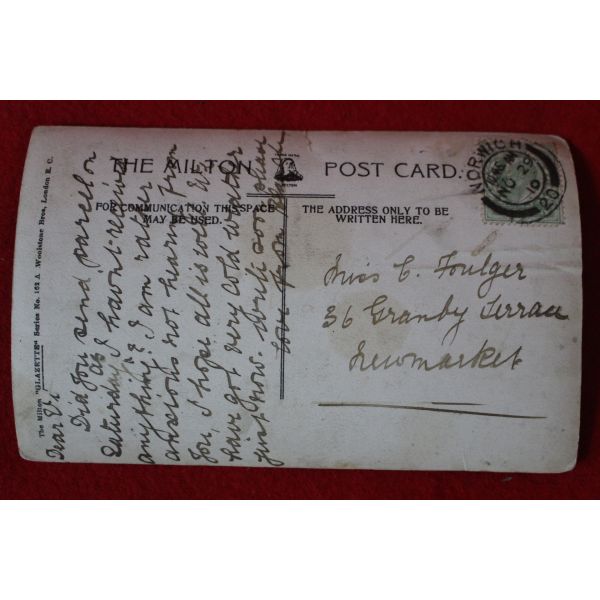 THE MILTON POST CARD.
FOR COMMUNICATION THIS SPACE
MAY BE USED.
THE ADDRESS ONLY TO BE
WRITTEN HERE.
The Milton "GLAZETTE" Series No. 162 A Woolstone Bros, London E. C.
NORWICH
NO 29
10
20
Miss C. Foulger
36 Granby Terrace
Newmarket
Dear
Did you send parcel on
Saturday as I havn't received
anything? I am rather
anxious not hearing from
you, I hope all is well. We
have got very cold weather
just now. Write soon
love from